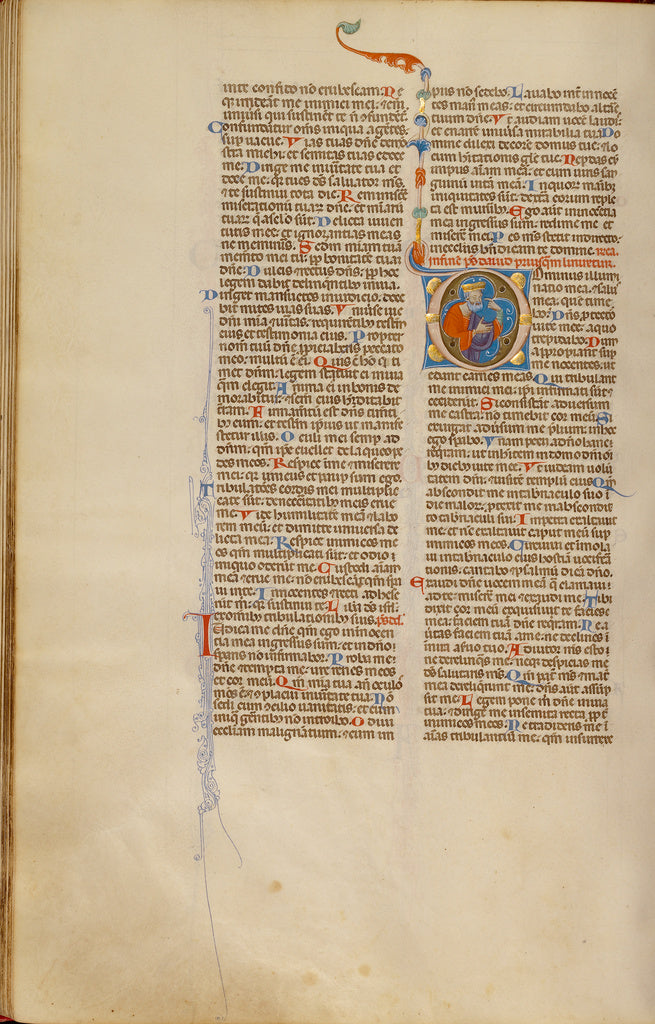 in te confido nō erubescam: Ne
q; irrideāt me inimici mei: etem̄
uniuersi qui sustinēt te n̄ ꝯfundēt̄.
Confundātur om̄s iniqua agētes:
sup uacue. Vias tuas dn̄e demō
stra michi: et semitas tuas edoce
me. Dirige me in ueritate tua et
doce me: q̄r tu es ds̄ saluator m̄s,
⁊ te sustinui tota die. Reminiscē
miserationū tuaꝝ dn̄e: et m̄iaꝝ
tuaꝝ q̄ a seculo sūt. Delicta iuuen
tutis mee: et ignorantias meas
ne memineris. Scdm̄ m̄iam tuā
memēto mei tu: ꝓpt̄ bonitatē tuā
dn̄e. Dulcis ⁊ rectus dn̄s: ꝓpt̄ hoc
legem dabit delinquētibꝫ in uia.
Diriget mansuetos in iudicio: doce
bit mites uias suas. Vniuerse uie
dn̄i m̄ia ⁊ ueritas: requirentibꝫ testm̄
eius et testimonia eius. Propter
nomen tuū dn̄e ꝓpiciaberis peccato
meo: multū ē .n̄. Quis ē hō q̄ ti
met dn̄m: legem statuit ei in uia
quā elegit. Anima ei in bonis de
morabitur: ⁊ sem̄ eius h̄editabit
terram. Firmamētū est dn̄s timēti
bꝫ eum: et testm̄ ip̄ius ut manife
stetur illis. Oculi mei semper ad
dn̄m: qm̄ ip̄e euellet de laqueo pe
des meos. Respice in me ⁊ miserere
mei: q̄r unicus et paup sum ego.
Tribulatōes cordis mei multiplic
cate sūt: de necessitatibꝫ meis erue
me. Vide humilitatē meā ⁊ labo
rem meū: et dimitte uniuersa de
licta mea. Respice inimicos me
os qm̄ multiplicati sūt: et odio i
niquo oderūt me. Custodi aīam
meā ⁊ erue me: nō erubescā qm̄ spa
ui in te. Innocentes ⁊ recti adhese
rūt m̄: q̄r sustinui te. Libera ds̄ isrl̄:
ex omībꝫ tribulationibꝫ suis. ps̄ dd̄.
Iudica me dn̄e qm̄ ego in innocen
tia mea ingressus sum: et in dn̄o
sperans nō infirmabor. Proba me
dn̄e ⁊ tempta me: ure renes meos
et cor meū. Qm̄ m̄ia tua an̄ oculos
meos ē: ⁊ ꝯplacui in ueritate tua. Nō
sedi cum ꝯcilio uanitatis: et cum
iniq̄ gerētibꝫ nō introibo. Odiui
eccl̄iam malignātium: ⁊ cum im
piis non sedebo. Lauabo int̄ innocē
tes manꝰ meas: et circumdabo altare
tuum dn̄e. Vt audiam uocē laudis:
et enarrē uniuersa mirabilia tua. Do
mine dilexi decorē domus tue: ⁊ lo
cum habitationis gl̄ie tue. Ne ꝑdas cū
impiis aīam meā: et cum uiris san
guinū uitā meā. In quoꝝ manibꝫ
iniquitates sūt: dextra eorum reple
ta est munibꝫ. Ego aūt in innocētia
mea ingressus sum: redime me et
miserē mei. Pes m̄s stetit in directo:
in eccl̄iis bn̄dicam te domine.
In finē ps̄ dauid priusq̄m liniretur.
Dominus illumi
natio mea: ⁊ salus
mea: que time
bo. Dn̄s ꝓtector
uite mee: a quo
trepidabo. Dum
appropiant sup
me nocentes: ut
edant carnes meas. Qui tribulant
me inimici mei: ip̄i infirmati sūt ⁊
ceciderūt. Si consistāt aduersum
me castra: nō timebit cor meū. Si
exurgat aduersum me p̄lium: in hoc
ego sperabo. Vnam petii a dn̄o hanc
requirā: ut inhitem in domo dn̄i oī
bꝫ diebꝫ uite mee. Vt uideam uolū
tatem dn̄i: ⁊ uisitē templū eius. Qm̄
abscondit me in tabernaculo suo i
die maloꝝ: ꝓtexit me in abscondito
tabernaculi sui. In petra exaltauit
me: et nc̄ exaltauit caput meū sup
inimicos meos. Circuiui et imola
ui in tabernaculo eius hostiā uociferā
tionis: cantabo ⁊ psalmū dicā dn̄o.
Exaudi dn̄e uocem meā q̄ clamaui
ad te: miserē mei ⁊ exaudi me. Tibi
dixit cor meū exquisiuit te facies
mea: faciem tuā dn̄e requirā. Ne a
u̾tas faciem tuā a me: ne declines i
in ira a seruo tuo. Adiutor m̄s esto:
ne derelinq̄s me: neq; despicias me
ds̄ salutaris m̄s. Qm̄ pat̄ m̄s ⁊ mat̄
mea dereliquerūt me: dn̄s aūt assūp
sit me. Legem pone m̄ dn̄e in uia
tua: ⁊ dirige me in semita recta ꝓpt̄
inimicos meos. Ne tradideris me i
aīas tribulantiū me: qm̄ insurrexe